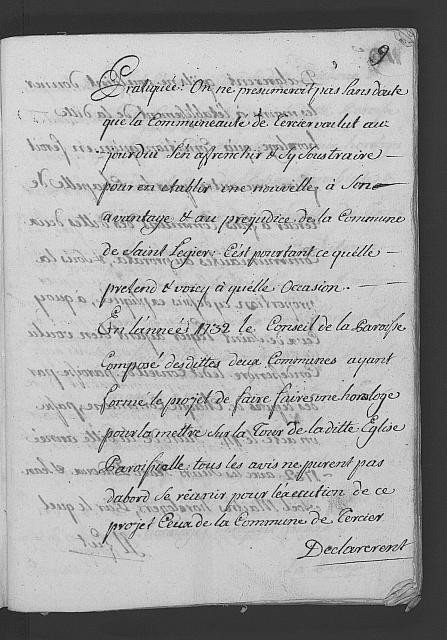 9
Pratiquée. On ne presumeroit pas sans doute
que la Communeaute de Tercier voulut au-
jourdui s'en affrenchir & s'y soustraire —
pour en etablir une nouvelle, à son
avantage & au prejudice de la Commune
de Saint Legier; C'est pourtant ce qu'elle
pretend & voicy à quelle Occasion. —
En l'année 1732 le Conseil de la Paroisse
Composé desdittes deux Communes ayant
formé le projet de faire faire une horsloge
pour la mettre sur la Tour de la ditte Eglise
Paroissialle, tous les avis ne purent pas
d'abord se reünir pour l'éxecution de ce
projet Ceux de la Commune de Tercier
Declarerent